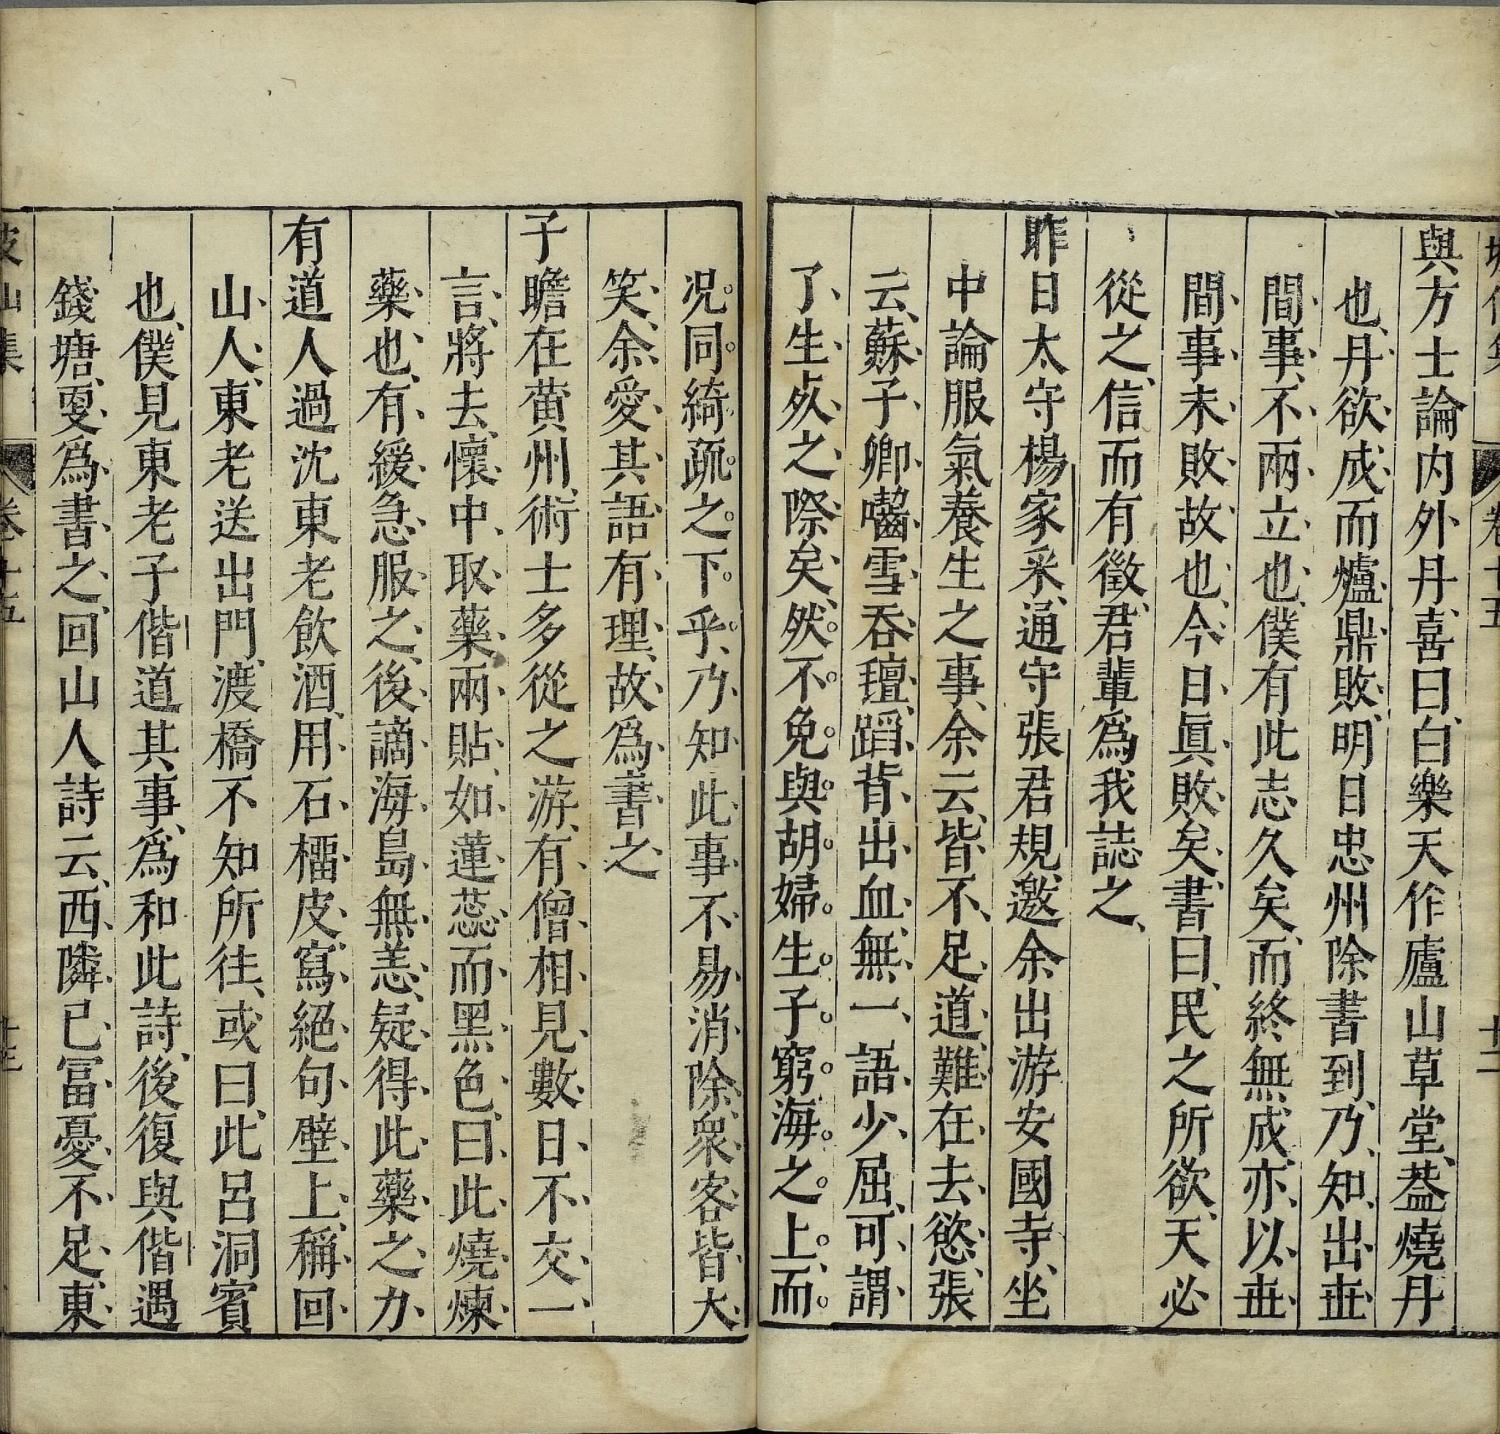 卷十五
十二
與方士論內外丹喜曰白樂天作廬山草堂葢燒丹
也丹欲成而爐鼎敗明日忠州除書到乃知出世
間事不兩立也僕有此志久矣而終無成亦以世
間事未敗故也今日眞敗矣書曰民之所欲天必
從之信而有徵君輩爲我誌之
昨日太守楊家采通守張君規邀余出游安國寺坐
中論服氣養生之事余云皆不足道難在去慾張
云蘇子卿嚙雪吞氊蹈背出血無一語少屈可謂
了生死之際矣然不免與胡婦生子窮海之上而
况同綺疏之下乎乃知此事不易消除衆客皆大
笑余愛其語有理故爲書之
子瞻在黄州術士多從之游有僧相見數日不交一
言將去懷中取藥兩貼如蓮蕊而黑色曰此燒煉
藥也有緩急服之後謫海島無恙疑得此藥之力
有道人過沈東老飲酒用石橊皮寫絕句壁上稱回
山人東老送出門渡橋不知所往或曰此呂洞賓
也僕見東老子偕道其事爲和此詩後復與偕遇
錢塘更爲書之回山人詩云西隣已富憂不足東
坡仙集
卷十五